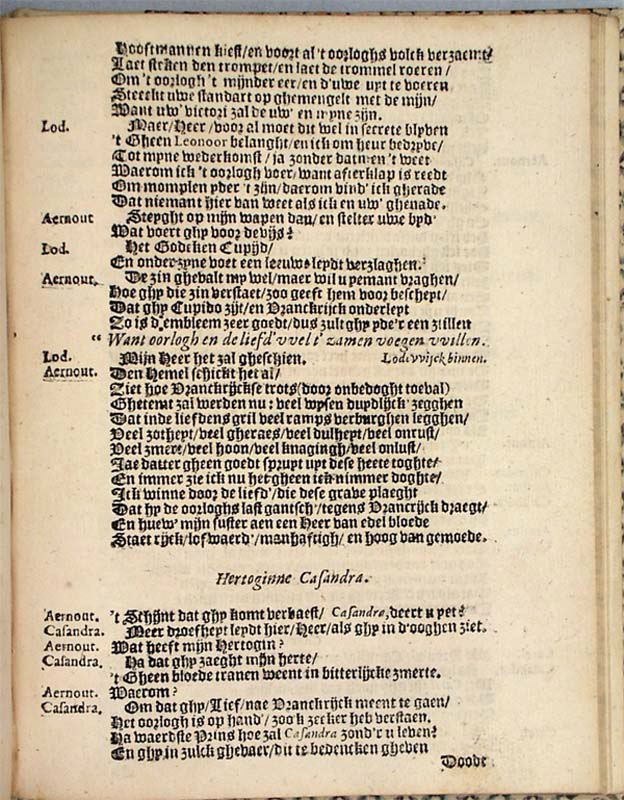 Hooftmannen kiest/en voort al 't oorloghs volck verzaemt?
Laet steken den trompet/en laet de trommel roeren/
Om 't oorlogh 't mijnder eer/en d'uwe uyt te voeren
Steeckt uwe standart op ghemengelt met de mijn/
Want uw' victori zal de uw' en myne zijn.
Lod. Maer/Heer/voor al moet dit wel in secrete blyven
't Gheen Leonoor belanght/en ick om heur bedryve/
Tot myne wederkomst/ja zonder datmen 't weet
Waerom ick 't oorlogh voer/want afterklap is reedt
Om momplen yder 't zijn/daerom vind' ick gherade
Dat niemant hier van weet als ick en uw' ghenade.
Aernout Steyght op mijn wapen dan/en stelter uwe byd'
Wat voert ghy voor devijs?
Lod. Het Godeken Cupijd/
En onder zyne voet een leeuwe leydt verzlaghen.
Aernout. De zin ghevalt my wel/maer wil u yemant vraghen/
Hoe ghy die zin verstaet/zoo geeft hem voor bescheyt/
Dat ghy Cupido zijt/en Vranckrijck onderleyt
Zo is d'embleem zeer goedt/dus zult ghy yde'r een stillen
“ Want oorlogh en de liefd' vvel t' zamen voegen vvillen.
Lod. Mijn Heer het zal gheschien. Lodevvijck binnen.
Aernout. Den Hemel schickt het al/
Ziet hoe Vranckrijckse trots (door onbedoght toeval)
Ghetemt zal werden nu: veel wysen duydlijck zegghen
Dat inde liefdens gril veel ramps verburghen legghen/
Veel zotheyt/veel gheraes/veel dulheyt/veel onrust/
Veel zmert/veel hoon/veel knagingh/veel onlust/
Jae datter gheen goedt spruyt uyt dese heete toghte/
En immer zie ick nu het gheen ick nimmer doghte/
Ick winne door de liefd'/die dese grave plaeght
Dat hy de oorloghs last gantsch/tegens Vrancrijck draegt/
En huew' mijn suster aen een Heer van edel bloede
Staet rijck/lofwaerd'/manhaftigh/en hoog van gemoede.
Hertoginne Casandra.
Aernout. 't Schijnt dat ghy komt verbaest/ Casandra, deert u yet?
Casandra. Meer droefheyt leydt hier/Heer/als ghy in d'ooghen ziet.
Aernout. Wat heeft mijn Hertogin?
Casandra. Ha dat ghy zaeght mijn herte/
't Gheen bloede tranen weent in bitterlijcke zmerte.
Aernout. Waerom?
Casandra. Om dat ghy/Lief/nae Vranckrijck meent te gaen/
Het oorlogh is op hand'/zoo 'k zeeker heb verstaen.
Ha waerdste Prins hoe zal Casandra zond'r u leven?
En ghy in zulck ghevaer/dit te bedencken gheven
Doodt